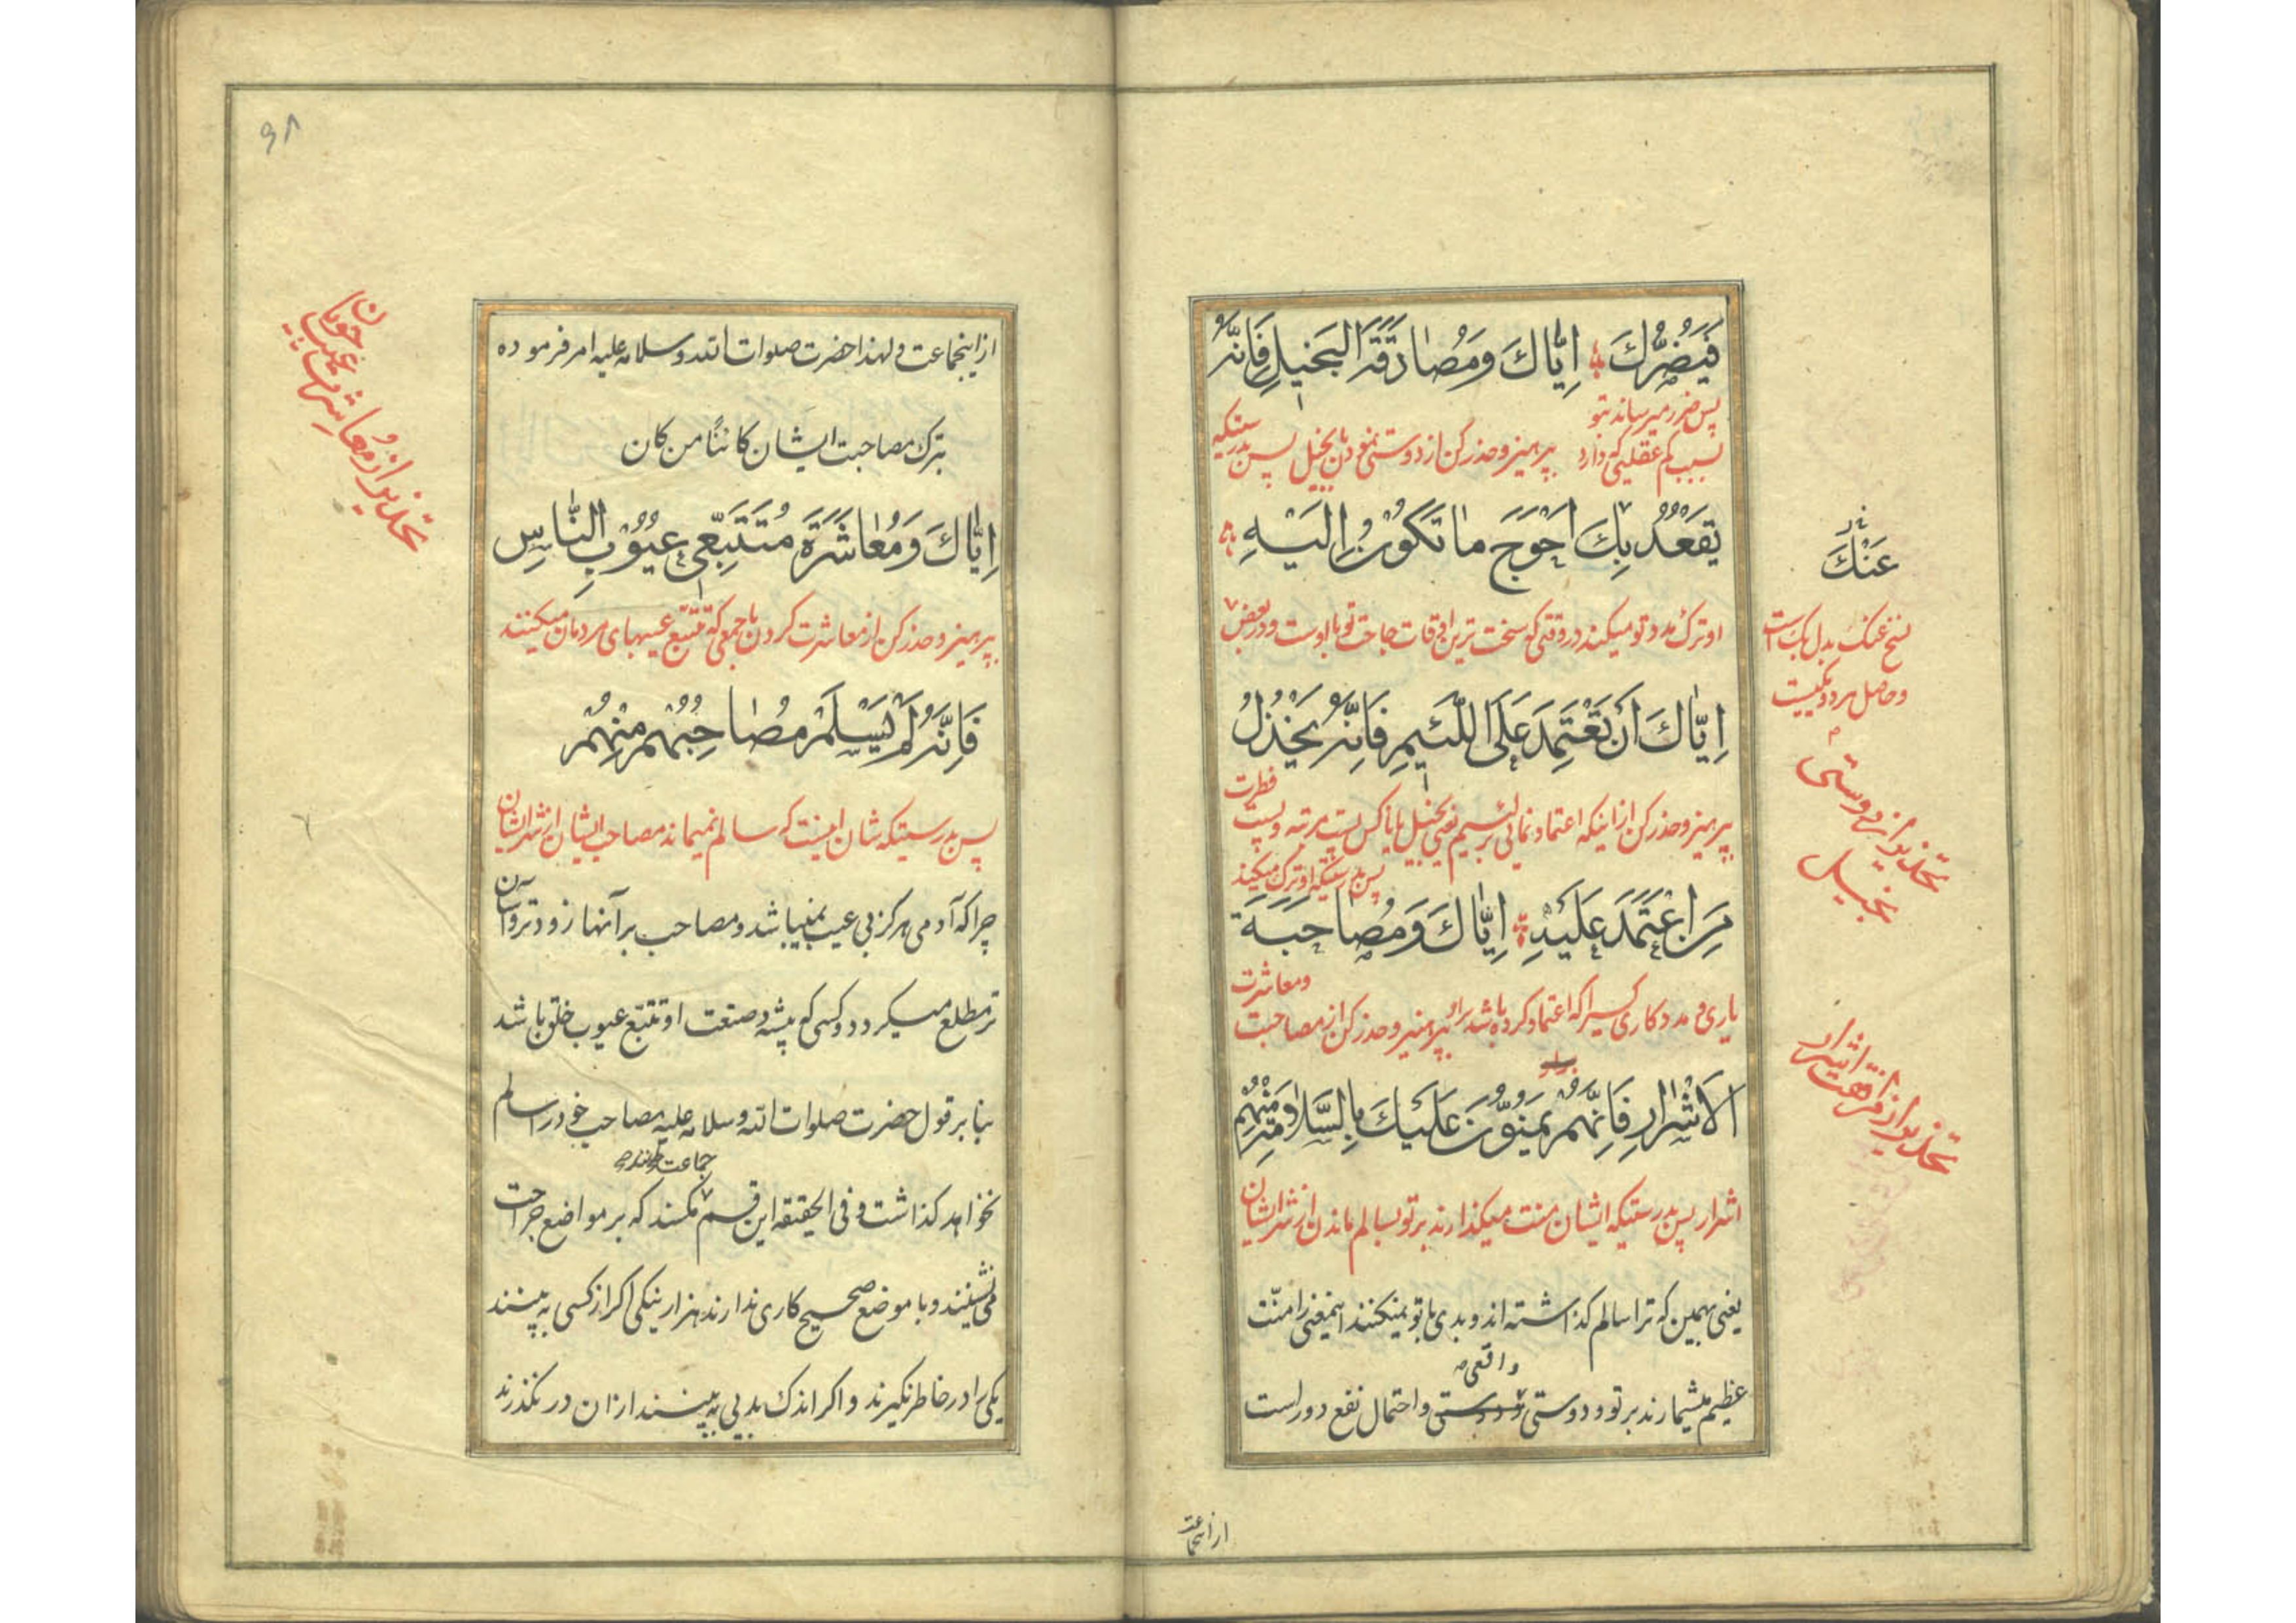 فَيَضُرُّكَ اِيّاكَ وَمُصٰادَقَةَ البَخيلِ فَاِنَّهُ
پس ضرر میرساند بتو
بسبب کم عقلیی که دارد بپرهیز و حذر کن از دوستی نمودن با بخیل پس بدرستیکه
يَقْعُدُ بِكَ اَحْوَجَ مٰا تَكُونُ اِلَيْهِ
او ترک مدد تو میکند در وقتی که سخت ترین اوقات حاجت تو با اوست و در بعض
اِيّٰاكَ اَنْ تَعْتَمِدَ عَلَى اللَّئيمِ فَاِنَّهُ يَخْذُلُ
بپرهیز و حذر کن از اینکه اعتماد نمائی بر لئیم یعنی بخیل یا ناکس پست مرتبه و پست فطرت
پس بدرستیکه او ترک میکند
مَنِ اعْتَمَدَ عَلَيْهِ اِيّٰاكَ وَمُصٰاحَبَةَ
یاری و مددکاری کسیرا که اعتماد کرده باشد براو بپرهیز و حذر کن از مصاحبت ومعاشرت
الاَشْرٰارِ فَاِنَّهُمْ يَمُنُّونَ عَلَيْكَ بِالسَّلاٰمَةِ مِنْهُمْ
اشرار پس بدرستیکه ایشان منت میگذارند بر تو بسالم ماندن از شر ایشان
یعنی همین که ترا سالم گذاشته اند و بدی با تو نمیکنند اینمعنی را منّت
واقعی
عظیم میشمارند بر تو و دوستی و دوستی و احتمال نفع دور است
عَنْكَ
نسخ عنک بدل بک است
و حاصل هر دو یکیست
تحذیر از دوستی
بخیل
تحذیر از مرافقت اشرار
از اینجماعت
۹۸
از اینجماعت و لهذا حضرت صلوات الله وسلامه علیه امر فرموده
بترک مصاحبت ایشان کائناً من کان
اِيّٰاكَ وَمُعٰاشَرَةَ مُتَتَبِّعى عُيُوبِ النّٰاسِ
بپرهیز و حذر کن از معاشرت کردن با جمعی که تتبّع عیبهای مردمان میکنند
فَاِنَّهُ لَمْ يَسْلَمْ مُصٰاحِبُهُمْ مِنْهُمْ
پس بدرستیکه شان اینست که سالم نمیماند مصاحب ایشان از شر ایشان
چرا که آدمی هرگز بی عیب نمیباشد و مصاحب بر آنها زودتر و آسان
تر مطلع میگردد و کسی که پیشه و صنعت او تتبّع عیوب خلق باشد
بنا بر قول حضرت صلوات الله وسلامه علیه مصاحب خود را سالم
نخواهد گذاشت و فی الحقیقه این قسم جماعت مانند مگسند که بر مواضع جراحت
می نشینند و با موضع صحیح کاری ندارند هزار نیکی اگر از کسی به بینند
یکی را در خاطر نگیرند و اگر اندک بدیی به بینند از ان در نگذرند
تحذیر از مُعاشرت عیب جویان